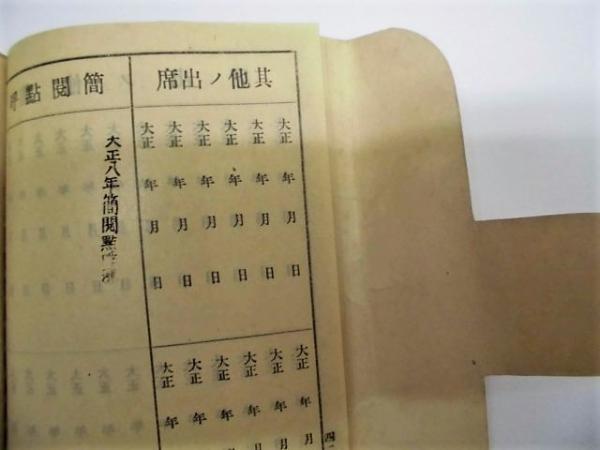 其他ノ出席
大正 年 月 日
大正 年 月 日
大正 年 月 日
大正 年 月 日
大正 年 月 日
大正 年 月 日
大正 年 月
大正 年 月
大正 年 月
大正 年
大正 年
大正 年
簡閲點
大正八年簡閲點
四